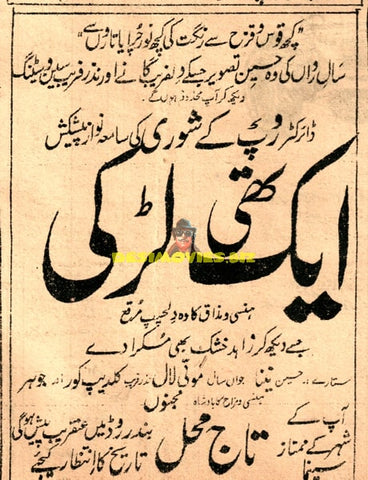 "کچھ قوس و قزح سے رنگت لی کچھ نور چرایا تاروں سے"
سالِ رواں کی وہ حسین تصویر جسکے دلفریب گانے اور نذر فریب سین و سیٹنگ
دیکھ کر آپ محظوظ ہوں گے
ڈائرکٹر روپ کے شوری کی سامعہ نواز پیشکش
ایک تھی لڑکی
DESIMOVIES.BIZ
ہنسی و مذاق کا وہ دلچسپ مرقع
جسے دیکھ کر زاہد خشک بھی مسکرا دے
ستارے :۔ حسین مینا جواں سال موتی لال کلدیپ کور اور جوہر
ہنسی و مزاح کا بادشاہ مجنوں
آپ کے شہر کے ممتاز سینما
تاج محل
بندر روڈ میں عنقریب پیش ہوگی
تاریخ کا انتظار کیجئے